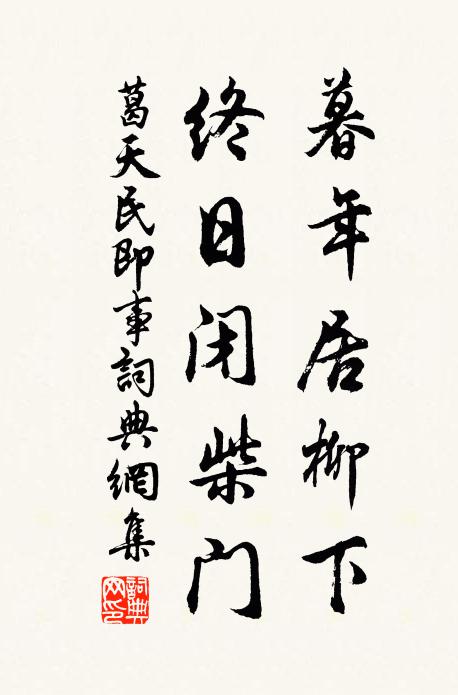 暮年居柳下
終日闭柴门
葛天民即事詞典網集
詞典网印